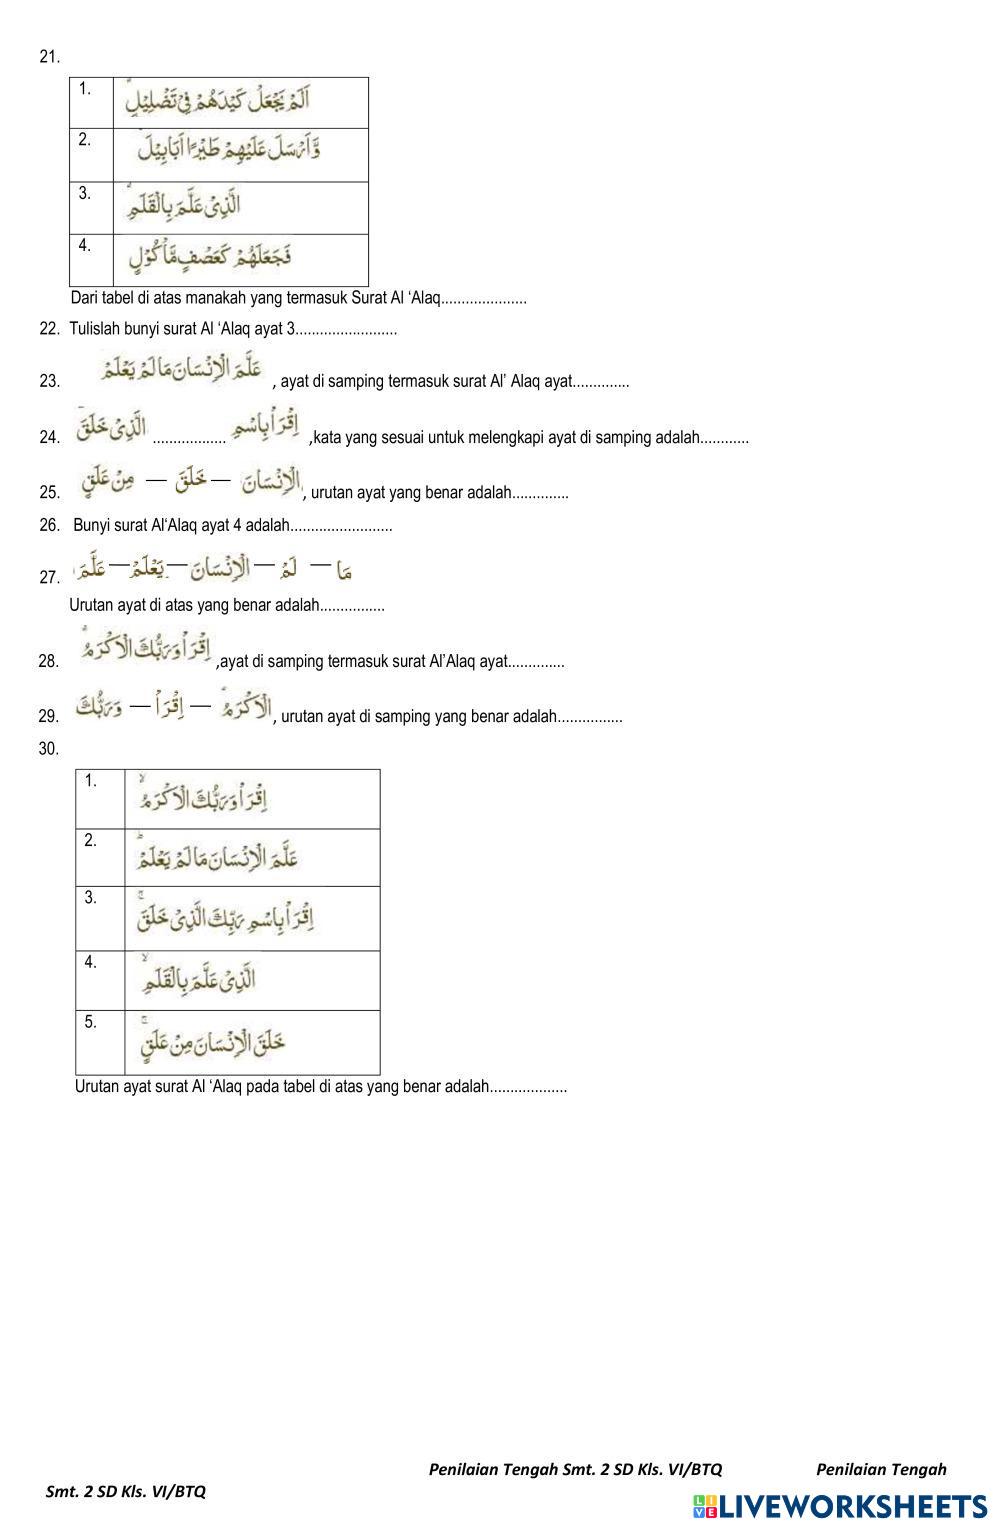 21.
1. اَلَمْ يَجْعَلْ كَيْدَهُمْ فِيْ تَضْلِيْلٍۙ
2. وَّاَرْسَلَ عَلَيْهِمْ طَيْرًا اَبَابِيْلَۙ
3. الَّذِيْ عَلَّمَ بِالْقَلَمِۙ
4. فَجَعَلَهُمْ كَعَصْفٍ مَّأْكُوْلٍ
Dari tabel di atas manakah yang termasuk Surat Al ‘Alaq.....................
22. Tulislah bunyi surat Al ‘Alaq ayat 3.........................
23. عَلَّمَ الْاِنْسَانَ مَا لَمْ يَعْلَمْ , ayat di samping termasuk surat Al’ Alaq ayat..............
24. اِقْرَأْ بِاسْمِ .................. الَّذِيْ خَلَقَ ,kata yang sesuai untuk melengkapi ayat di samping adalah............
25. الْاِنْسَانَ — خَلَقَ — مِنْ عَلَقٍ , urutan ayat yang benar adalah..............
26. Bunyi surat Al‘Alaq ayat 4 adalah.........................
27. مَا — لَمْ — الْاِنْسَانَ — يَعْلَمْ — عَلَّمَ
Urutan ayat di atas yang benar adalah................
28. اِقْرَأْ وَرَبُّكَ الْاَكْرَمُۙ ,ayat di samping termasuk surat Al’Alaq ayat..............
29. الْاَكْرَمُۙ — اِقْرَأْ — وَرَبُّكَ , urutan ayat di samping yang benar adalah................
30.
1. اِقْرَأْ وَرَبُّكَ الْاَكْرَمُۙ
2. عَلَّمَ الْاِنْسَانَ مَا لَمْ يَعْلَمْۗ
3. اِقْرَأْ بِاسْمِ رَبِّكَ الَّذِيْ خَلَقَۚ
4. الَّذِيْ عَلَّمَ بِالْقَلَمِۙ
5. خَلَقَ الْاِنْسَانَ مِنْ عَلَقٍۚ
Urutan ayat surat Al ‘Alaq pada tabel di atas yang benar adalah...................
Penilaian Tengah Smt. 2 SD Kls. VI/BTQ Penilaian Tengah
Smt. 2 SD Kls. VI/BTQ
LIVE LIVEWORKSHEETS